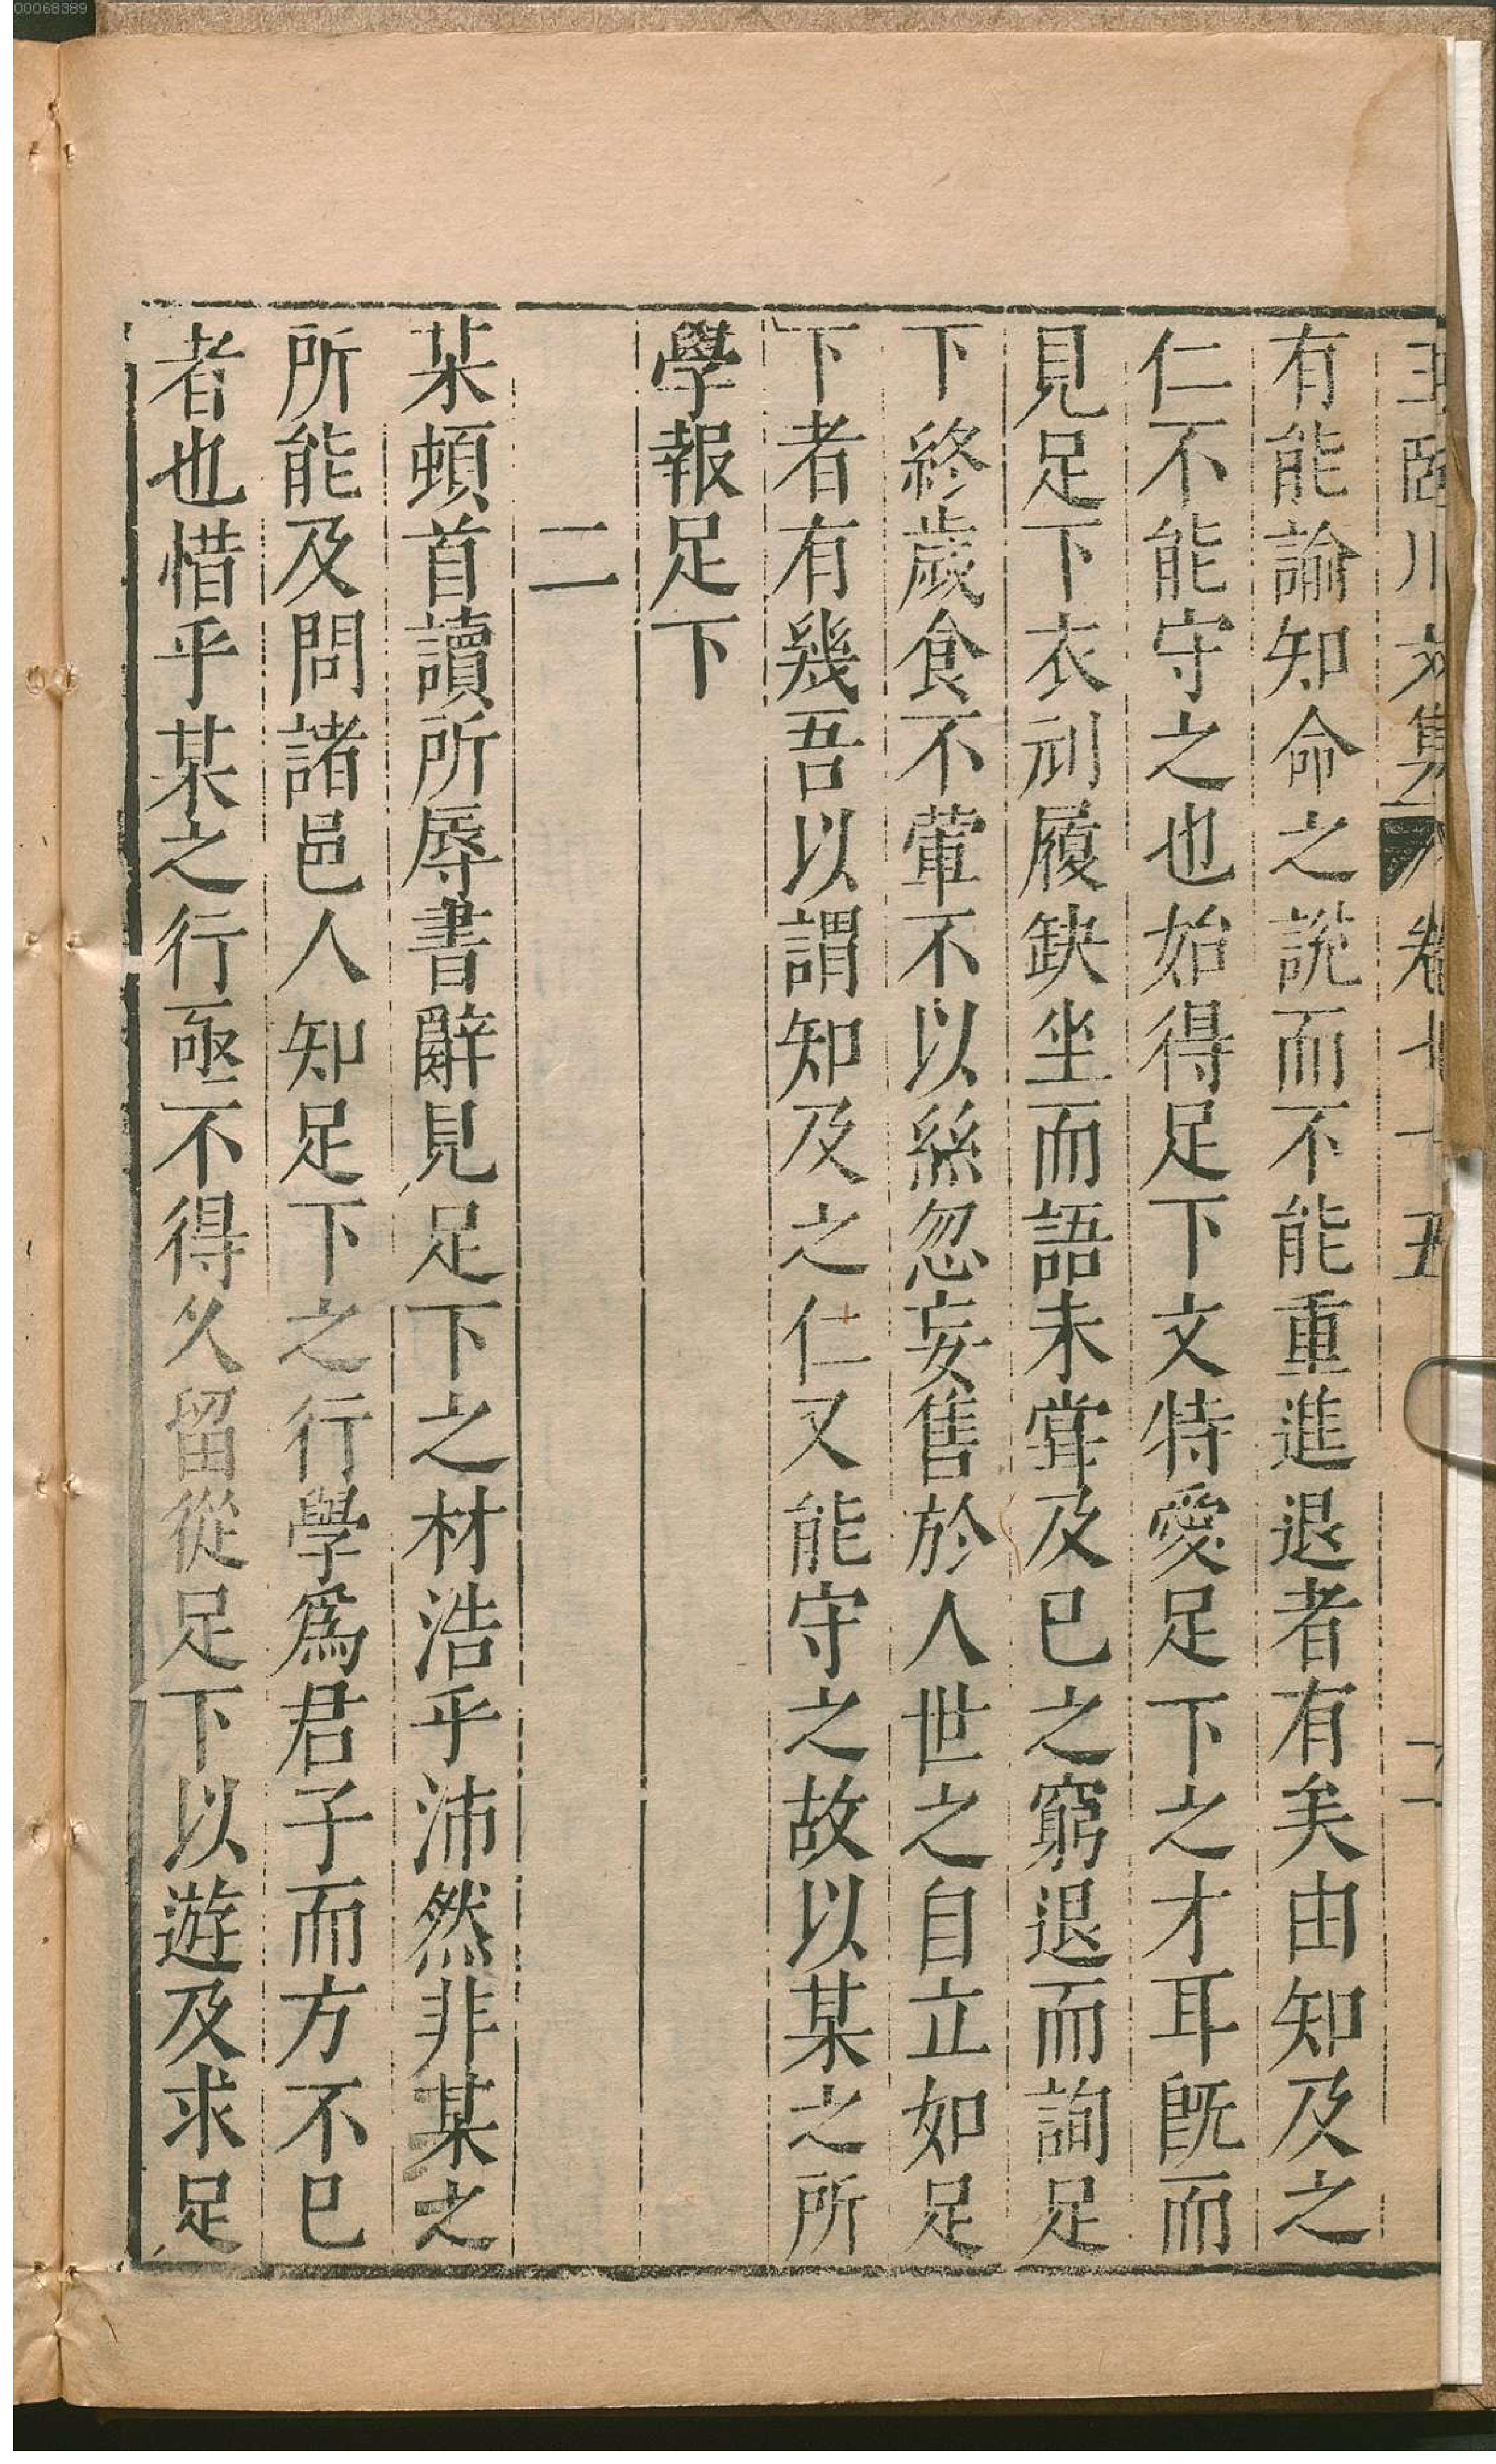 00068389
王臨川文集 卷七十五
有能論知命之說而不能重進退者有矣由知及之
仁不能守之也始得足下文特愛足下之才耳旣而
見足下衣刓履缺坐而語未甞及已之窮退而詢足
下終歲食不葷不以絲忽妄售於人世之自立如足
下者有幾吾以謂知及之仁又能守之故以某之所
學報足下
二
某頓首讀所辱書辭見足下之材浩乎沛然非某之
所能及問諸邑人知足下之行學爲君子而方不已
者也惜乎某之行亟不得久留從足下以遊及求足